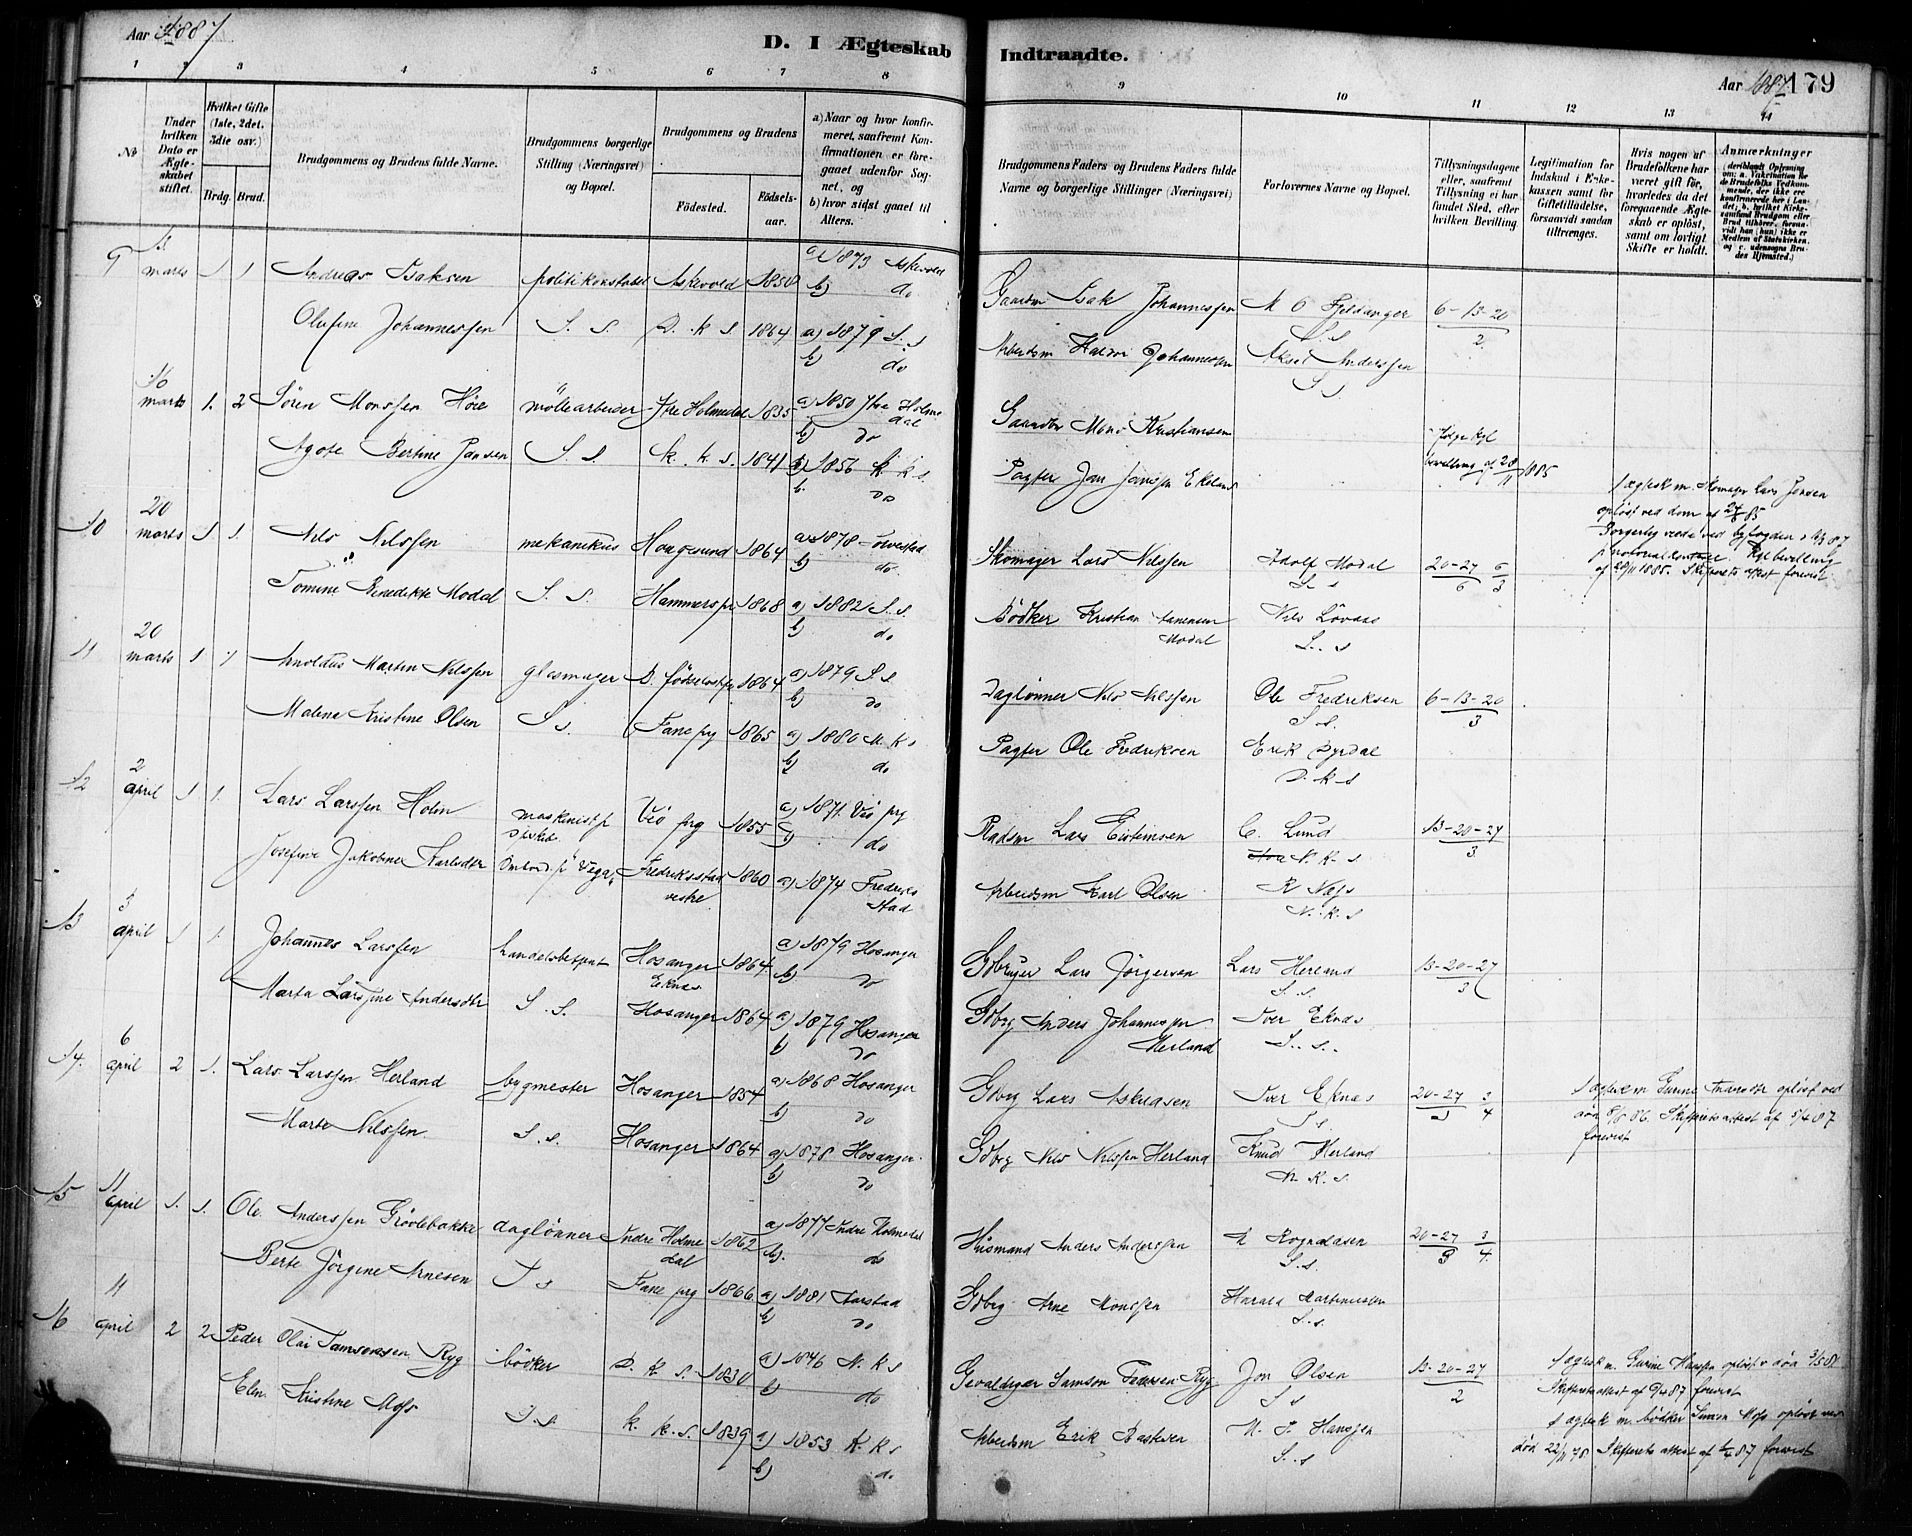 Aar 1887
D. I Ægteskab
Indtraadte.
Aar 1887
179
1 2 3 4 5 6 7 8 9 10 11 12 13 14
No
Under hvilken Dato er Ægteskabet stiftet.
Hvilket Gifte (1ste, 2det, 3die osv.)
Brdg. Brud.
Brudgommens og Brudens fulde Navne.
Brudgommens borgerlige Stilling (Næringsvei) og Bopæl.
Brudgommens og Brudens
Fødested.
Fødselsaar.
a) Naar og hvor konfirmeret, saafremt Konfirmationen er foregaaet udenfor Sognet, og
b) hvor sidst gaaet til Alters.
Brudgommens Faders og Brudens Faders fulde Navne og borgerlige Stillinger (Næringsvei)
Forlovernes Navne og Bopæl.
Tillysningsdagene eller, saafremt Tillysning ei har fundet Sted, efter hvilken Bevilling
Legitimation for Indskud i Enkekassen samt for Giftetilladelse, forsaavidt saadan tiltrænges.
Hvis nogen af Brudefolkene har været gift før, hvorledes da det foregaaende Ægteskab er opløst, samt om lovligt Skifte er holdt.
Anmærkninger
9 13 marts 1 1 Andreas Isaksen politikonstabel Askevold 1850 a) 1873 Askevold b) do Gaardm Isak Johannessen M O Fjeldanger S. s 6-13-20/2
Olufine Johannessen S. s. D. k s 1864 a) 1879 S. s b) do Arbeidsm Halvor Johannessen Aksel Anderssen S s
16 marts 1. 2 Sören Monssen Höie möllearbeider Ytre Holmedal 1835 a) 1850 Ytre Holmedal b) do Gaardbr Mons Kristiansen Ifølge Kgl bevilling af 28/11 1885
Agote Bertine Jansen S. s. K. k s. 1841 a) 1856 K k s. b. do Pagter Jan Jansen Ekeland
I ægtesk m. Skomager Lars Jensen
opløst ved dom af 27/5 85
Borgerlig viede ved byfogden
Kgl bevilling
af 28/11 1885. Skifterets attest forevist
10 20 marts 1 1. Nils Nilssen mekanikus Haugesund 1864 a) 1878 Torvestad b) do. Skomager Lars Nilssen Adolf Modal S. s 20-27/6 6/3
Tomine Benedikte Modal S. s. Hammers pr 1868 a) 1882 S. s b) do Bödker Kristian Tønensen Modal Nils Lövaas S.. s
11 20 marts 1 1 Arnoldus Martin Nilssen glasmager D. fødselsst. 1864 a) 1879. S. s. b) do Daglønner Nils Nilssen Ole Fredriksen S. s. 6-13-20/3
Malena Kristine Olsen S s. Fane prg 1865 a) 1880 M. k s b) do Pagter Ole Fredriksen Erik Dyrdal D. k s
12 2 april 1 1. Lars Larssen Holm maskinist p. D/skib Viö prg 1855 a) 1871 Viö prg b) do Pladsm Lars Eistensen C. Lund N. K. s 13-20-27/3
Josefine Jakobine Karlsdtr Ombord på "Vega" Fredriksstad vestre 1860 a) 1874 Fredriksstad Arbeidsm Karl Olsen R Næss N. K. s
13 3 april 1 1. Johannes Larssen handelsbetjent Hosanger 1864. a) 1879 Hosanger b) do Gdbruger Lars Jörgensen Lars Herland S. s. 13-20-27/3
Marta Larssine Andersdtr S. s. Eknæs Hosanger 1864 a) 1879 Hosanger b) do Gdbrg Anders Johannessen Herland Iver Eknæs S.. s..
14. 6 april 2 1. Lars Larssen Herland bygmester Hosanger 1854 a) 1868 Hosanger b) do Gdbrg Lars Askildsen Iver Eknæs S s. 20-27/3 3/4
I ægtesk m opløst ved
død 8/8 86. Skifterets attest af 5/4 87
forevist
Marte Nilssen S. s. Hosanger 1864 a) 1878 Hosanger. b) do Gdbrg Nils Nilssen Herland Knud Herland N K. s.
15 11 april 1. 1. Ole Anderssen Grövlebakke daglönner Indre Holmedal 1862 a) 1877 Indre Holmedal b). do Husmand Anders Anderssen S.s. 20-27/3 3/4
Berte Jörgine Arnesen S s Fane prg 1866 a) 1881 Aarstad b) do Gdbrg Arne Monssen Harald Martinussen S.s.
16 11 april 2 2 Peder Olai Samsonsen Ryg bödker D. K s. 1830 a) 1846 N. k s b) do Gevaldiger Samson Pedersen Ryg Jon Olsen S s 13-20-27/2
Skifterets attest af 9/4 87 forevist
Elen Kristine Moss S.s k. k. s. 1839 a) 1853 K. k s b) do Arbeidsm Erik M. J. Hanssen S. s
I ægtesk m. bödker Simon Moss opløst ved
død 22/11 78. Skifterets attest af 87 forevist